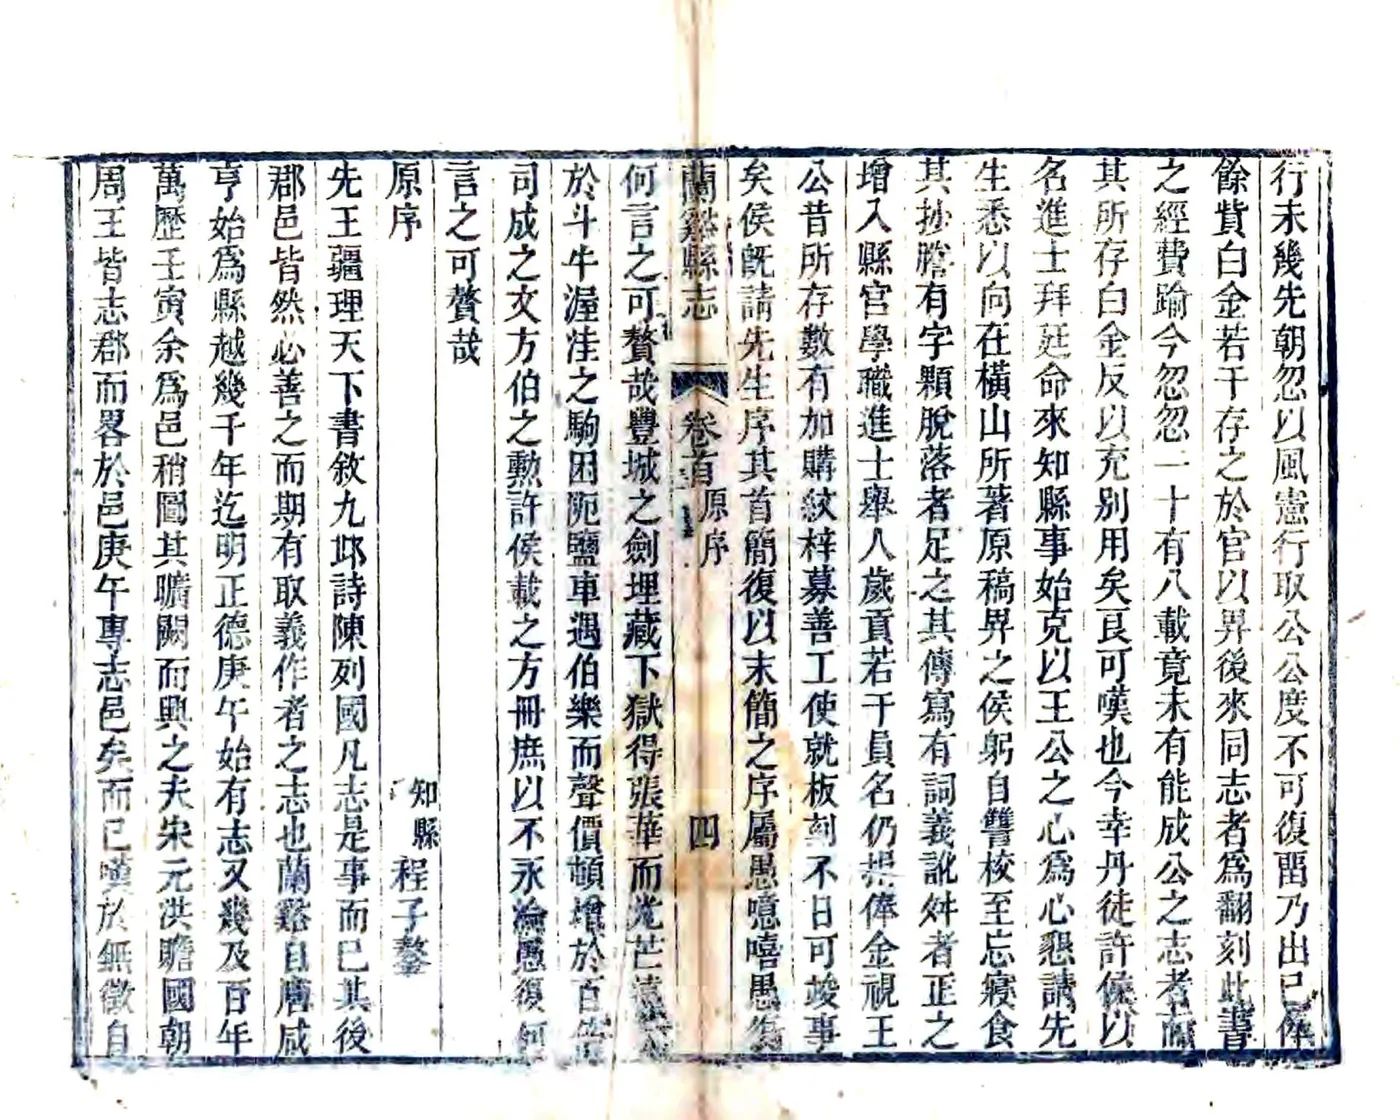 行未幾先朝忽以風憲行取公公度不可復畱乃出已俸
餘貲白金若干存之於官以畀後來同志者爲翻刻此書
之經費踰今忽忽二十有八載竟未有能成公之志者而
其所存白金反以充別用矣良可嘆也今幸丹徒許侯以
名進士拜廷命來知縣事始克以王公之心爲心懇請先
生悉以向在橫山所著原稿畀之侯躬自讐校至忘寢食
其抄謄有字顆脫落者足之其傳寫有詞義訛舛者正之
增入縣官學職進士舉人歲貢若干員名仍捐俸金視王
公昔所存數有加購紋梓募善工使就板刻不日可竣事
矣侯旣請先生序其首簡復以末簡之序屬愚噫嘻愚復
蘭谿縣志 卷首 原序 四
何言之可贅哉豐城之劍埋藏下獄得張華而光芒
於斗牛渥洼之駒困阨鹽車遇伯樂而聲價頓增於百倍
司成之文方伯之勳許侯載之方冊庶以不永淪愚復何
言之可贅哉
原序
知縣 程子鏊
先王疆理天下書敘九邱詩陳列國凡志是事而已其後
郡邑皆然必善之而期有取義作者之志也蘭谿自唐咸
亨始爲縣越幾千年迄明正德庚午始有志又幾及百年
萬歷壬寅余爲邑稍圖其曠闕而興之夫宋元洪贍國朝
周王皆志郡而畧於邑庚午專志邑矣而已嘆於無徵自